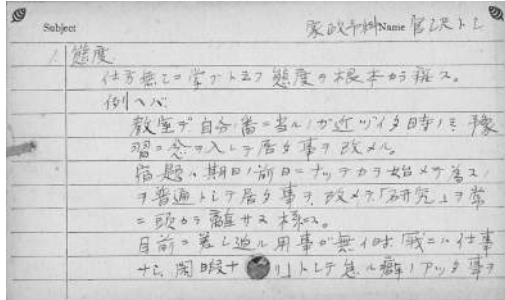 Subject 家政予科 Name 宮沢トシ
1. 態度
仕方無しニ学ブト云フ態度ヲ根本カラ廃ス。
例ヘバ
教室デ自分ノ番ニ当ルノガ近ヅイタ時ノミ予
習ニ念ヲ入レテ居タ事ヲ改メル。
宿題ハ期日ノ前日ニナッテカラ始メテ為ス
ヲ普通トシテ居タ事ヲ改メテ「研究」ヲ常
ニ頭カラ離サヌ様ニス。
目前ニ差シ迫ル用事ガ無イ時、
ナシ閑暇ナ リ」トシテ怠ル癖ノアッタ事ヲ